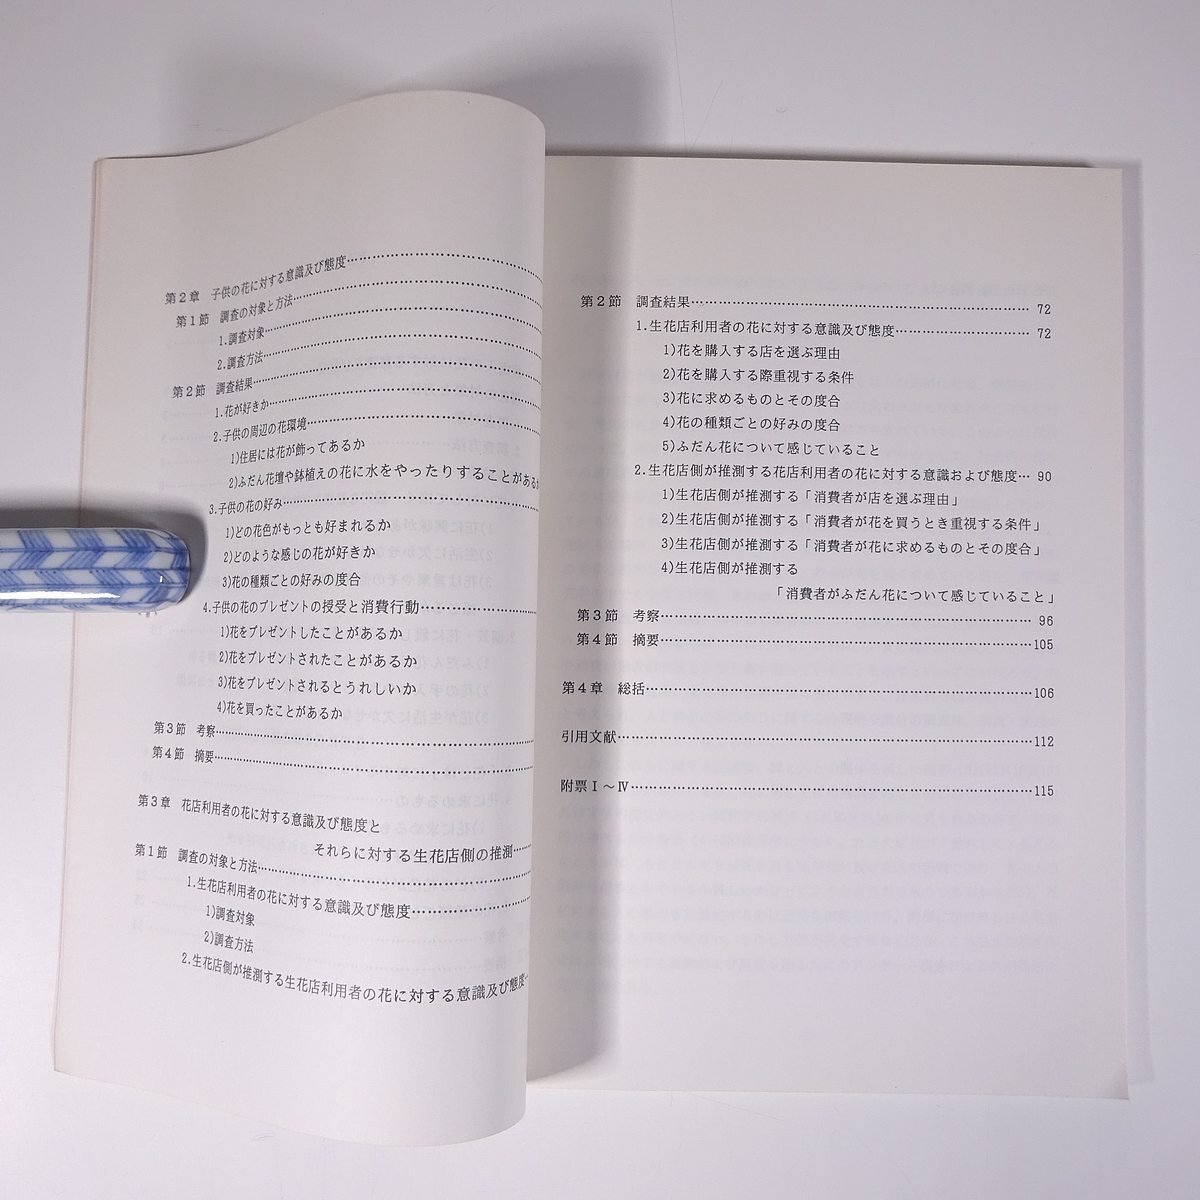 第２章　子供の花に対する意識及び態度……………………
第１節　調査の対象と方法……………………
1.調査対象……………………
2.調査方法……………………
第２節　調査結果……………………
1.花が好きか……………………
2.子供の周辺の花環境……………………
1)住居には花が飾ってあるか
2)ふだん花壇や鉢植えの花に水をやったりすることがあるか
3.子供の花の好み……………………
1)どの花色がもっとも好まれるか
2)どのような感じの花が好きか
3)花の種類ごとの好みの度合
4.子供の花のプレゼントの授受と消費行動……………………
1)花をプレゼントしたことがあるか
2)花をプレゼントされたことがあるか
3)花をプレゼントされるとうれしいか
4)花を買ったことがあるか
第３節　考察……………………
第４節　摘要……………………
第３章　花店利用者の花に対する意識及び態度と
それらに対する生花店側の推測……
第１節　調査の対象と方法……………………
1.生花店利用者の花に対する意識及び態度……………………
1)調査対象
2)調査方法
2.生花店側が推測する生花店利用者の花に対する意識及び態度…
第２節　調査結果…………………… 72
1.生花店利用者の花に対する意識及び態度…………………… 72
1)花を購入する店を選ぶ理由
2)花を購入する際重視する条件
3)花に求めるものとその度合
4)花の種類ごとの好みの度合
5)ふだん花について感じていること
2.生花店側が推測する花店利用者の花に対する意識および態度… 90
1)生花店側が推測する「消費者が店を選ぶ理由」
2)生花店側が推測する「消費者が花を買うとき重視する条件」
3)生花店側が推測する「消費者が花に求めるものとその度合」
4)生花店側が推測する
「消費者がふだん花について感じていること」
第３節　考察…………………… 96
第４節　摘要……………………105
第４章　総括……………………106
引用文献……………………112
附票Ⅰ～Ⅳ……………………115